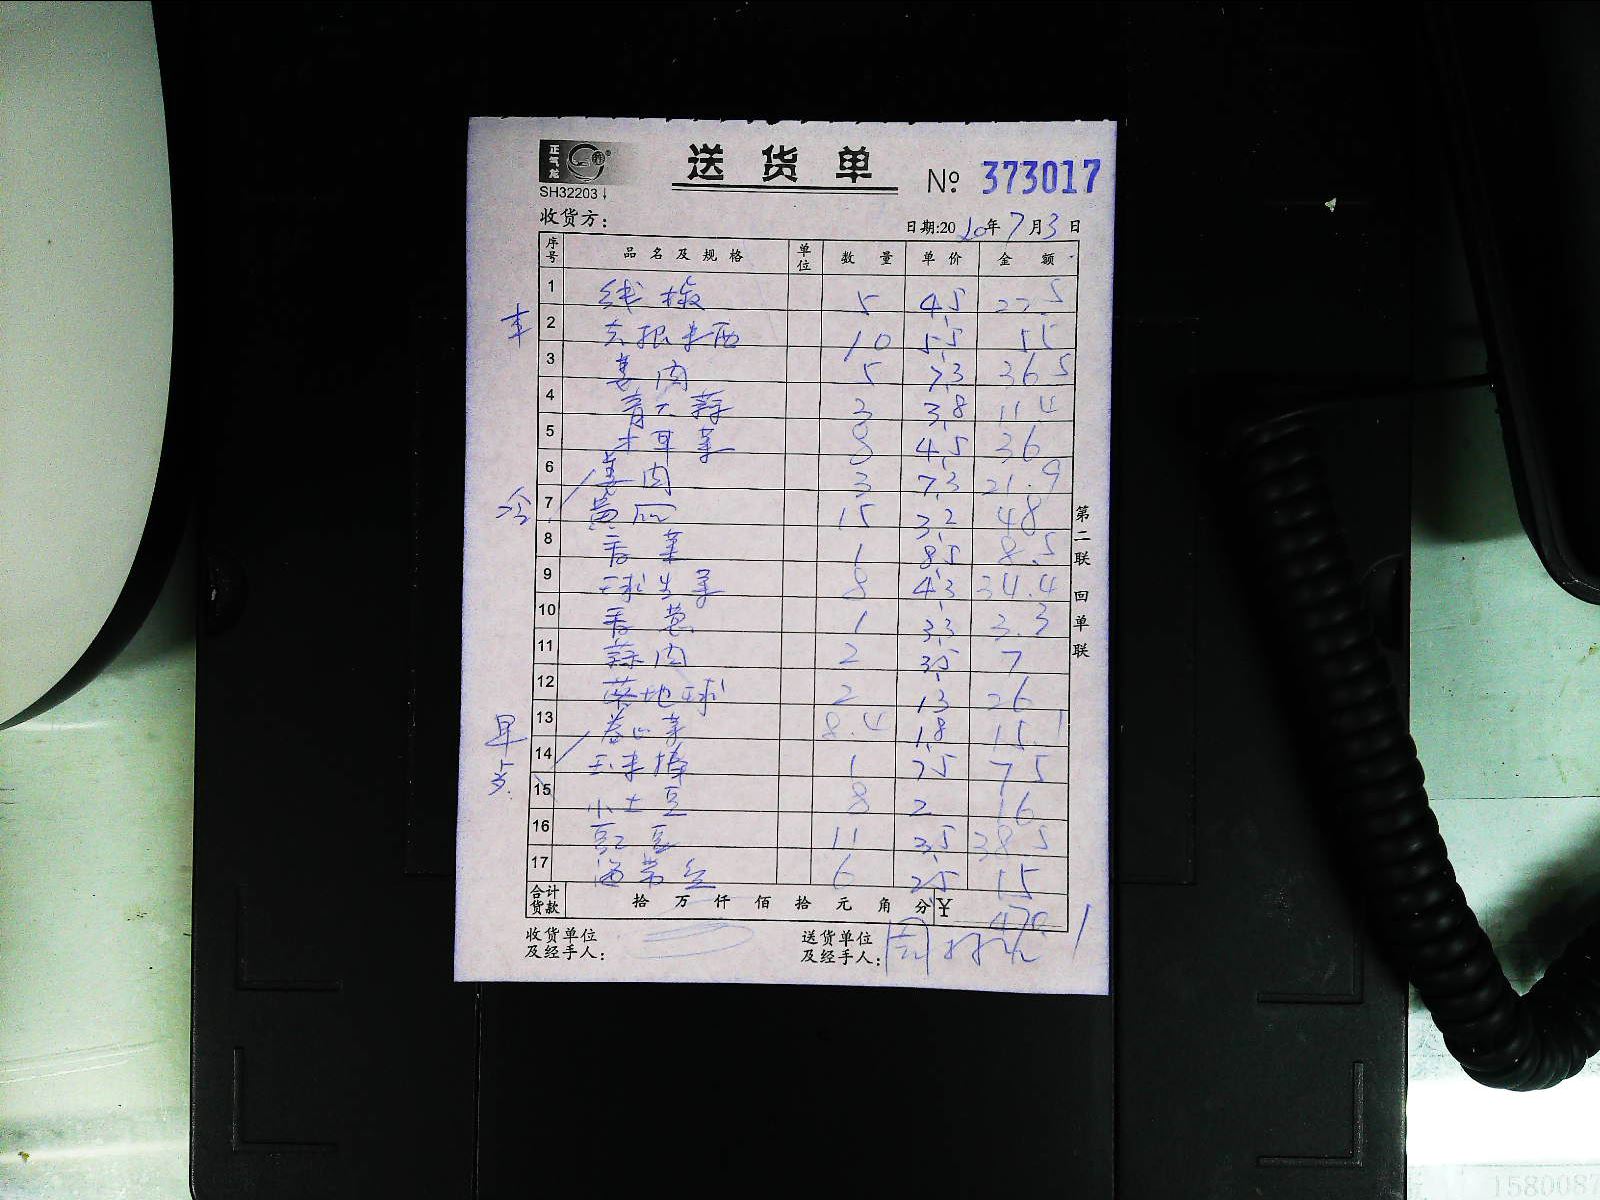 正气龙
送货单 № 373017
SH32203↓
收货方: 日期:2020年7月3日
序号 品名及规格 单位 数量 单价 金额
1 线椒 5 4.5 22.5
2 去根末西 10 5.5 55
3 姜肉 5 7.3 36.5
4 青大蒜 3 3.8 11.4
5 木耳菜 8 4.5 36
6 姜肉 3 7.3 21.9
冷
7 黄瓜 15 3.2 48
8 香菜 1 8.5 8.5
9 球生菜 8 4.3 34.4
10 香葱 1 3.3 3.3
11 蒜肉 2 3.5 7
12 落地球 2 13 26
13 卷心菜 8.4 1.8 15.1
早
14 玉米棒 1 75 75
15 小土豆 8 2 16
16 豇豆 11 3.5 38.5
17 海带丝 6 2.5 15
合计货款 拾万仟佰拾元角分 ¥ 470.1
收货单位及经手人: 送货单位及经手人:
第二联 回单联
1580087